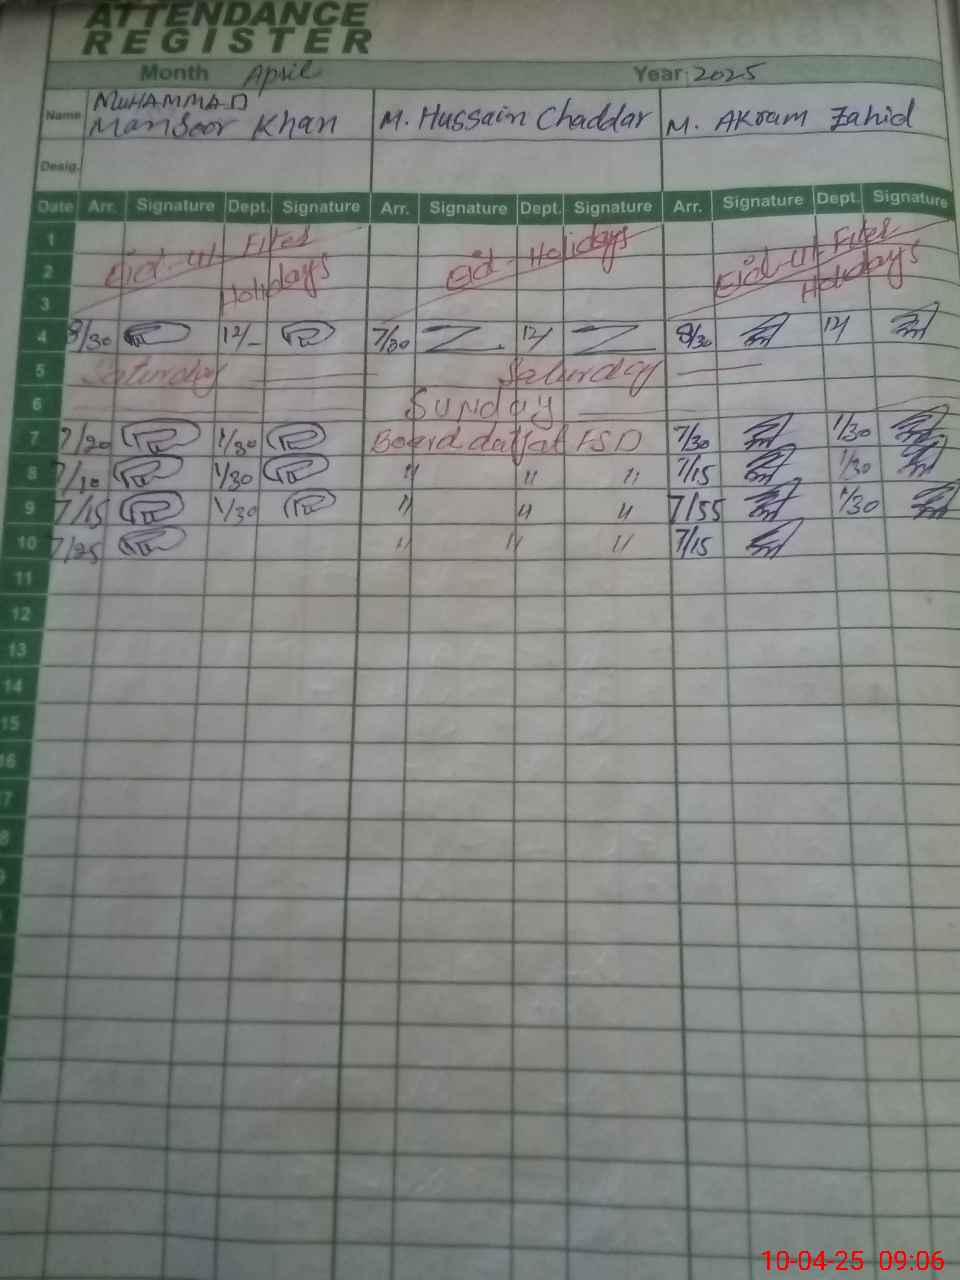 ATTENDANCE
REGISTER
Month April Year 2025
Name MUHAMMAD Mansoor Khan M. Hussain Chaddar M. AKram Zahid
Desig.
Date Arr. Signature Dept. Signature Arr. Signature Dept. Signature Arr. Signature Dept. Signature
1 Eid-ul Fiter Eid-Holidays Eid-ul Fiter
2 Holidays Holidays
3
4 8/30 12/- 7/30 12/ 8/30 12/
5 Saturday Saturday
6 Sunday
7 7/20 1/30 Board at FSD 7/30 1/30
8 7/10 1/30 " " " 7/15 1/30
9 7/15 1/30 " " " 7/55 1/30
10 7/25 " " " 7/15
11
12
13
14
15
16
10-04-25 09:06